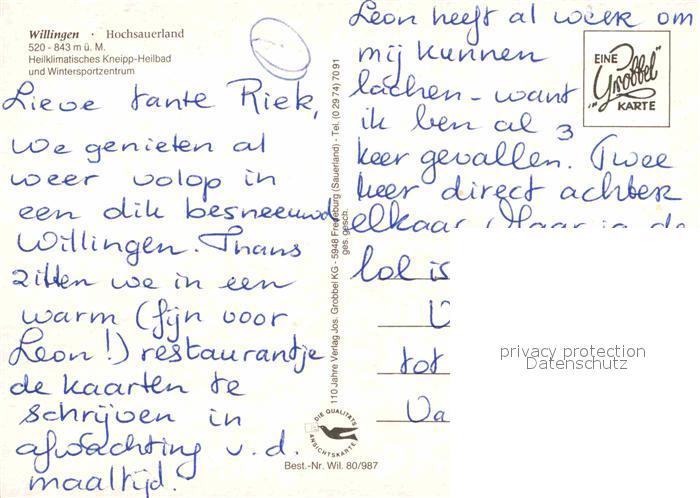 Willingen · Hochsauerland
520 - 843 m ü. M.
Heilklimatisches Kneipp-Heilbad
und Wintersportzentrum
Lieve tante Riek,
We genieten al
weer volop in
een dik besneeuwd
Willingen. Thans
zitten we in een
warm (fijn voor
Leon!) restaurantje
de kaarten te
schrijven in
afwachting v.d.
maaltijd.
Leon heeft al weer om
mij kunnen
lachen - want
ik ben al 3
keer gevallen. Twee
keer direct achter
elkaar. Maar ja de
lol is
tot
Va
EINE
"Grobbel"
KARTE
110 Jahre Verlag Jos. Grobbel KG - 5948 Fredeburg (Sauerland) - Tel. (0 29 74) 70 91
ges. gesch.
DIE QUALITÄTS
ANSICHTSKARTE
Best.-Nr. Wil. 80/987
privacy protection
Datenschutz